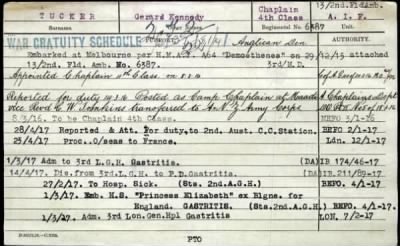 TUCKER Gerard Kennedy Chaplain 4th Class 13/2nd.Fld.Amb. A.I.F.
Surname Christian Names Rank Regimental No. 6387 Unit
WAR GRATUITY SCHEDULE Anglican Den
Embarked at Melbourne per H.M.A.T. A64 "Demosthenes" on 29/12/15 attached
13/2nd. Fld. Amb. No. 6387. 3rd M.D.
Appointed Chaplain 4th Class. on
Reported for duty Posted as Camp Chaplain at
vice Revd C.W. Tomkins transferred to Anzac Army Corps
8/3/16. To be Chaplain 4th Class. BEFO 3/1-16
28/4/17 Reported & Att. for duty, to 2nd. Aust. C.C.Station. BEFO 2/1-17
25/4/17 Proc. O/seas to France. Ldn. 12/1-17
1/3/17 Adm to 3rd L.G.H. Gastritis (DA)IB 174/46-17
14/4/17. Dis. from 3rd.L.G.H. to P.D. Gastritis (DA)IB.211/89-17
27/2/17. To Hosp. Sick. (Sts. 2nd.A.G.H.) BEFO. 4/1-17
1/3/17. Emb. H.S. "Princess Elizabeth" ex Blgne. for
England. GASTRITIS. (Sts.2nd.A.G.H.) BEFO. 4/1-17.
1/3/17. Adm. 3rd Lon.Gen.Hpl Gastritis LON. 7/2-17
PTO